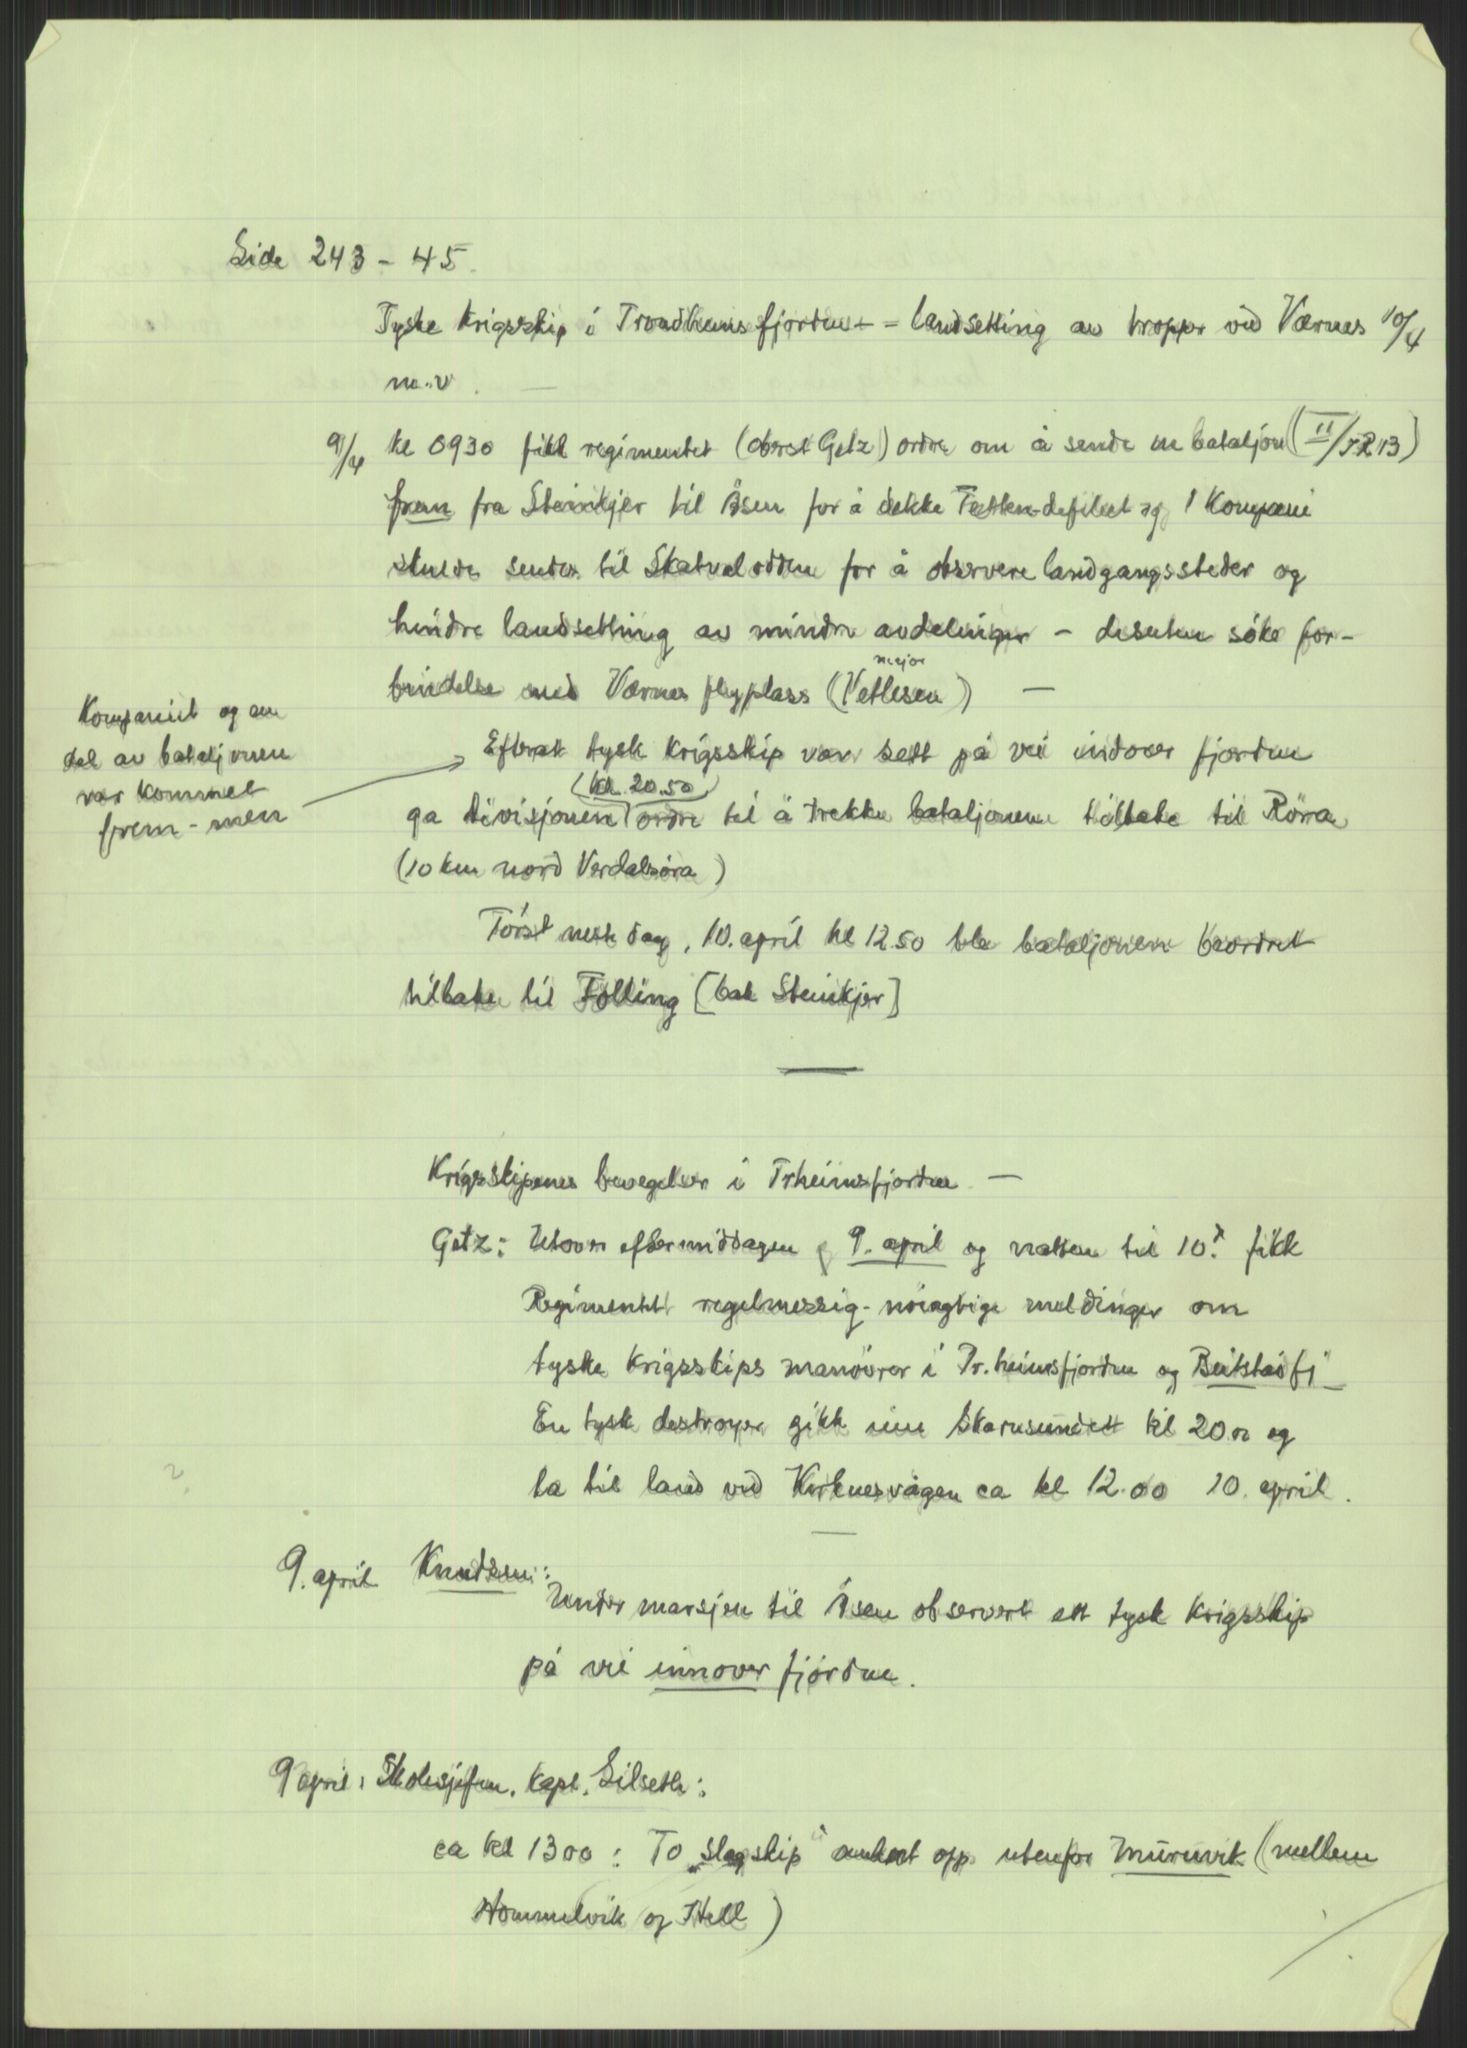 Side 243 - 45.
Tyske krigsskip i Trondheimsfjorden - landsetting av tropper ved Værnes 10/4
m.v. —
9/4 kl 0930 fikk regimentet (oberst Getz) ordre om å sende en bataljon (II/IR 13)
frem fra Steinkjer til Åsen for å dekke Fætten-defileet og 1 kompani
skulde sendes til Skatvalodden for å observere landgangssteder og
hindre landsetting av mindre avdelinger - desuten söke for-
bindelse med Værnes flyplass (major Vetlesen) —
Kompaniet og en
del av bataljonen
var kommet
frem - men
Efterat tysk krigsskip var sett på vei indover fjorden
ga divisjonen (kl. 20.50) ordre til å trekke bataljonen tilbake til Röra
(10 km nord Verdalsöra)
Först neste dag, 10. april kl 12.50 ble bataljonen beordret
tilbake til Fölling [bak Steinkjer]
Krigsskipenes bevegelser i Trheimsfjorden —
Getz: Utover eftermiddagen 9. april og natten til 10. fikk
Regimentet regelmessig - nöiagtige meldinger om
tyske krigsskips manövrer i Tr.heimsfjorden og Beitstadfj
En tysk destroyer gikk inn Skarnsundet kl 20.00 og
la til land ved Kirknesvågen ca kl 12.00 10. april.
9. april Knudsen:
Under marsjen til Åsen observert ett tysk krigsskip
på vei innover fjorden.
9 april: Skolesjefen, kapt. Lilseth:
ca kl 1300: To "slagskip" ankret opp utenfor Muruvik (mellem
Hommelvik og Hell)